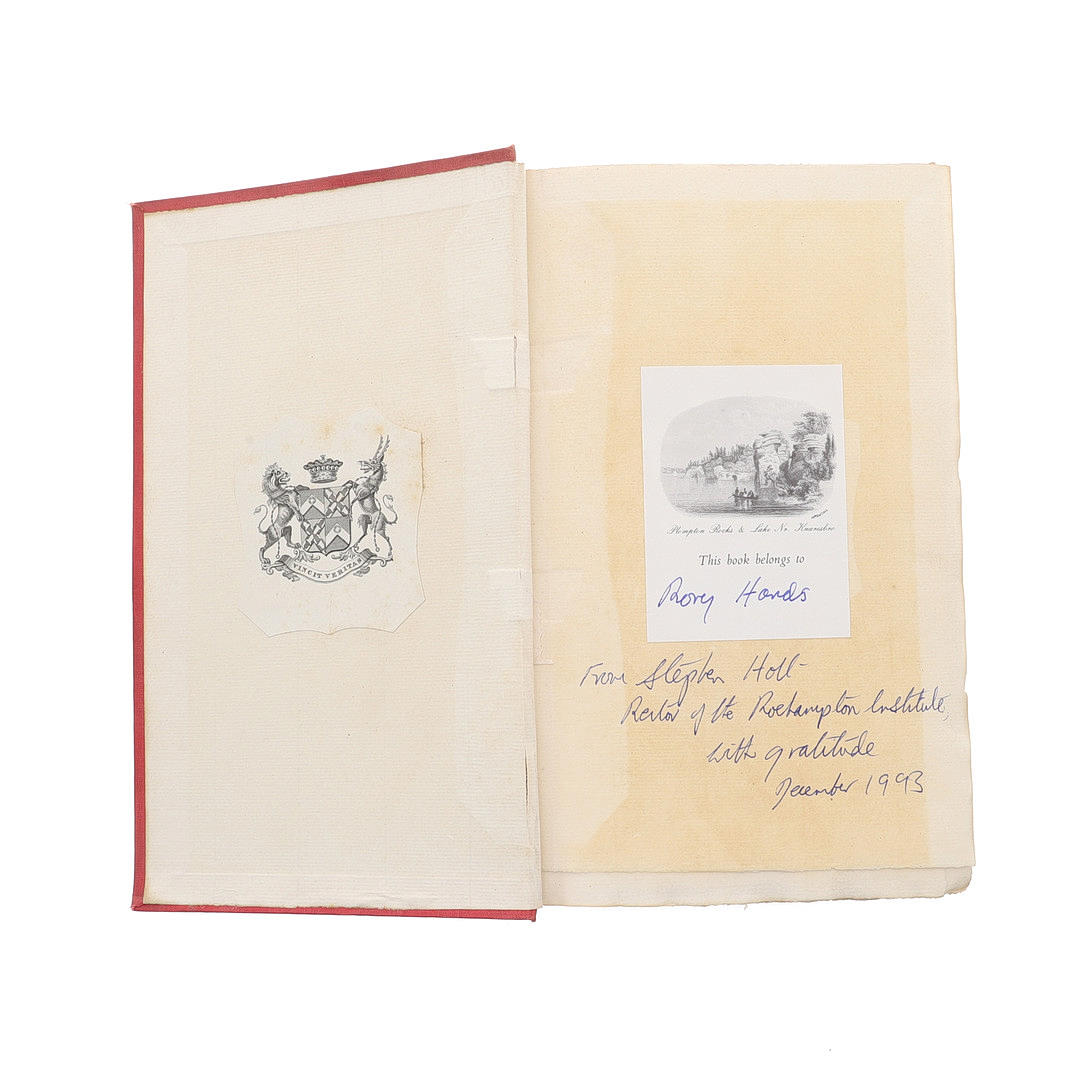 VINCIT VERITAS
Plompton Rocks & Lake Nr. Knaresbro
This book belongs to
Rory Hands
From Stephen Holt
Rector of the Roehampton Institute,
with gratitude
December 1993